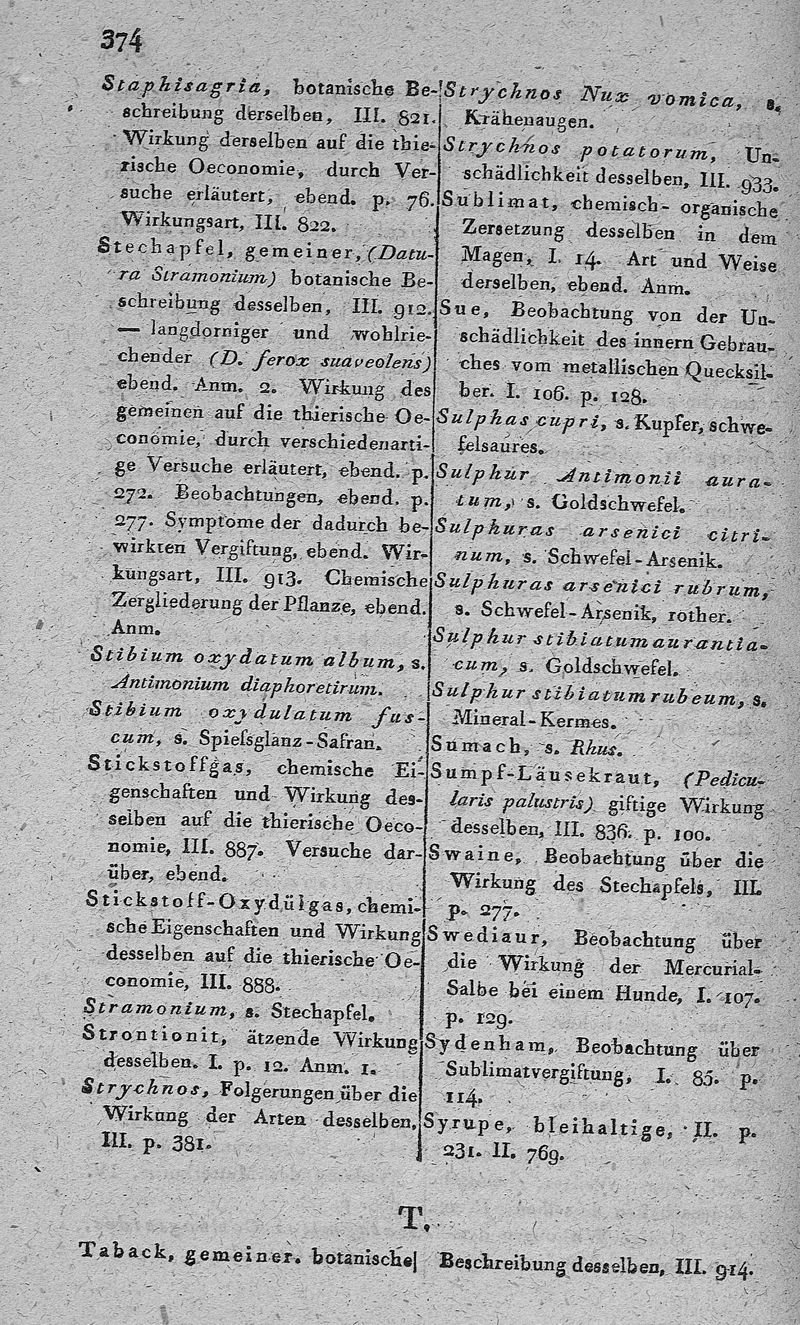 374
Staphisagria, botanische Be-
schreibung derselben, III. 821.
Wirkung derselben auf die thie-
rische Oeconomie, durch Ver-
suche erläutert, ebend. p. 76.
Wirkungsart, III. 822.
Stechapfel, gemeiner, (Datu-
ra Stramonium) botanische Be-
schreibung desselben, III. 912.
— langdorniger und wohlrie-
chender (D. ferox suaveolens)
ebend. Anm. 2. Wirkung des
gemeinen auf die thierische Oe-
conomie, durch verschiedenarti-
ge Versuche erläutert, ebend. p.
272. Beobachtungen, ebend. p.
277. Symptome der dadurch be-
wirkten Vergiftung, ebend. Wir-
kungsart, III. 913. Chemische
Zergliederung der Pflanze, ebend.
Anm.
Stibium oxydatum album, s.
Antimonium diaphoretirum.
Stibium oxydulatum fus-
cum, s. Spiefsglanz-Safran.
Stickstoffgas, chemische Ei-
genschaften und Wirkung des-
selben auf die thierische Oeco-
nomie, III. 887. Versuche dar-
über, ebend.
Stickstoff-Oxydülgas, chemi-
sche Eigenschaften und Wirkung
desselben auf die thierische Oe-
conomie, III. 888.
Stramonium, s. Stechapfel.
Strontionit, ätzende Wirkung
desselben. I. p. 12. Anm. 1.
Strychnos, Folgerungen über die
Wirkung der Arten desselben,
III. p. 381.
Strychnos Nux vomica, s.
Krähenaugen.
Strychnos potatorum, Un-
schädlichkeit desselben, III. 933.
Sublimat, chemisch-organische
Zersetzung desselben in dem
Magen, I. 14. Art und Weise
derselben, ebend. Anm.
Sue, Beobachtung von der Un-
schädlichkeit des innern Gebrau-
ches vom metallischen Quecksil-
ber. I. 106. p. 128.
Sulphas cupri, s. Kupfer, schwe-
felsaures.
Sulphur Antimonii aura-
tum, s. Goldschwefel.
Sulphuras arsenici citri-
num, s. Schwefel-Arsenik.
Sulphuras arsenici rubrum,
s. Schwefel-Arsenik, rother.
Sulphur stibiatum aurantia-
cum, s. Goldschwefel.
Sulphur stibiatum rubeum, s.
Mineral-Kermes.
Sumach, s. Rhus.
Sumpf-Läusekraut, (Pedicu-
laris palustris) giftige Wirkung
desselben, III. 836. p. 100.
Swaine, Beobachtung über die
Wirkung des Stechapfels, III.
p. 277.
Swediaur, Beobachtung über
die Wirkung der Mercurial-
Salbe bei einem Hunde, I. 107.
p. 129.
Sydenham, Beobachtung über
Sublimatvergiftung, I. 85. p.
114.
Syrupe, bleihaltige, II. p.
231. II. 769.
T.
Taback, gemeiner. botanische
Beschreibung desselben, III. 914.